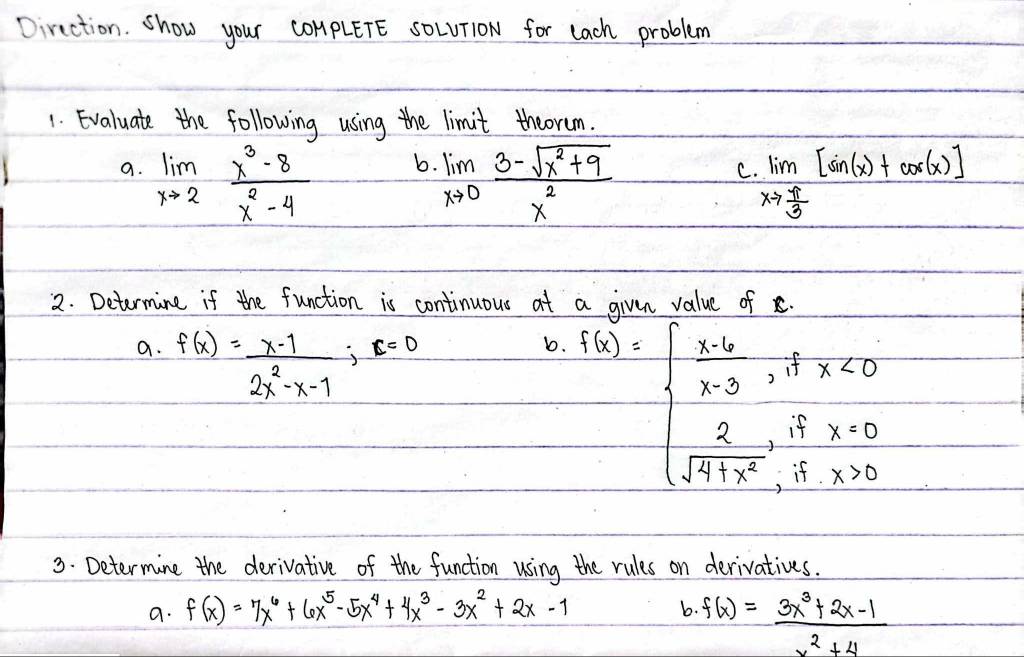 Direction. Show your COMPLETE SOLUTION for each problem
1. Evaluate the following using the limit theorem.
a. lim x→2 (x³-8)/(x²-4) b. lim x→0 (3-√(x²+9))/x² c. lim x→π/3 [sin(x) + cos(x)]
2. Determine if the function is continuous at a given value of c.
a. f(x) = (x-1)/(2x²-x-1) ; c=0 b. f(x) = { (x-6)/(x-3) , if x<0
2 , if x=0
√(4+x²) , if x>0
3. Determine the derivative of the function using the rules on derivatives.
a. f(x) = 7x⁶ + 6x⁵ - 5x⁴ + 4x³ - 3x² + 2x - 1 b. f(x) = (3x³+2x-1)/(x²+4)